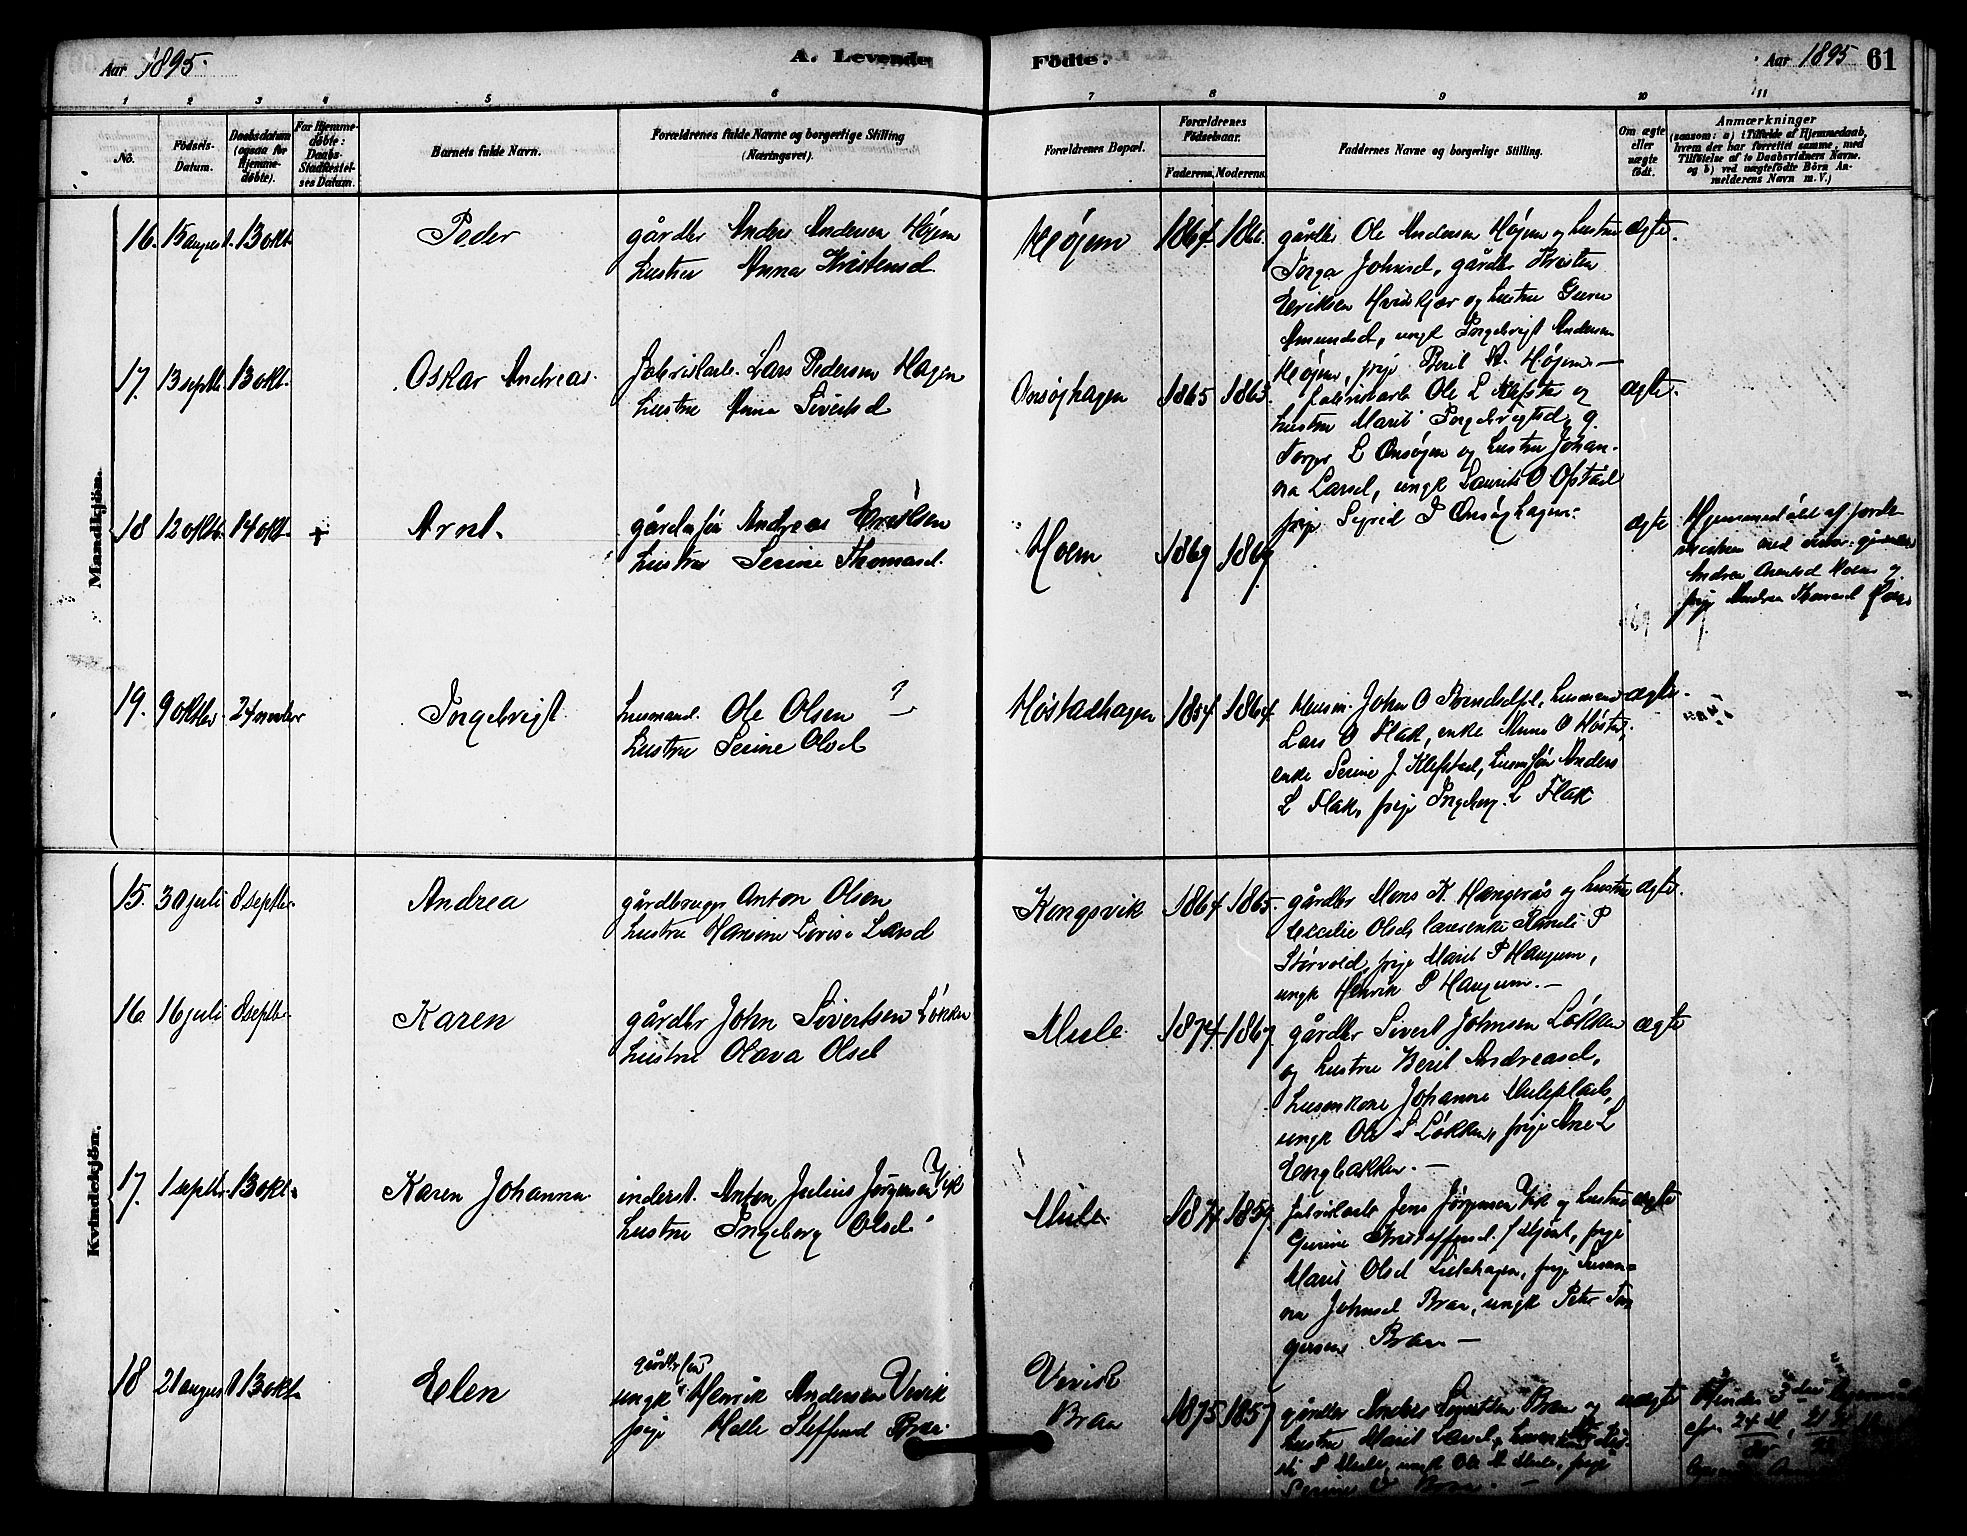 Aar 1895.
A. Levende
Födte.
Aar 1895
61
1 2 3 4 5 6 7 8 9 10 11
No.
Födsels-
Datum.
Daabsdatum
(ogsaa for
Hjemme-
döbte).
For Hjemme-
döbte:
Daabs-
Stadfæstel-
ses Datum.
Barnets fulde Navn.
Forældrenes fulde Navne og borgerlige Stilling
(Næringsvei).
Forældrenes Bopæl.
Forældrenes
Födselsaar.
Faderens. Moderens.
Faddernes Navne og borgerlige Stilling.
Om ægte
eller
uægte
födt.
Anmærkninger
(saasom: a) i Tilfælde af Hjemmedaab,
hvem der har forrettet samme, med
Tilföielse af to Daabsvidners Navne.
og b) ved uægtefödte Börn An-
melderens Navn m. V.)
Mandkjön.
16. 15 august. 13 okt.
Peder
gårdbr Anders Andersen Höjem
hustru Anna Kristensd
Höjem
1864
gårdbr Ole Andersen Höjem og hustru
Inga Johnsd, gårdbr Kristen
Eriksen og hustru
Amundsd, ungk Ingebrigt Andersen
Höjem, pige Beril A. Höjem.—
ægte.
17. 13 septbr 13 okt.
Oskar Andreas.
fabrikarb. Lars Pedersen Hagen
hustru Anna Sivertsd
Onsöjhagen
1865 1863.
fabrikarb Ole L og
hustru Marit Ingebrigtsd, g.
L Onsöjen og hustru Johan-
na Larsd, ungk Laurits O Opstad
pige Sigrid P Onsöjhagen.
ægte.
18 12 oktbr. 14 okt. +
Arnt.
gårdm för Andreas Eriksen
hustru Serine Thomasd.
Moen
1869 1869
ægte
Hjemmedöbt af jorde-
moderen med
Andrea Arentsd Moen og
pige Andrea
19. 9 oktbr. 24 novbr
Ingebrigt
husmand. Ole Olsen ?
hustru Serine Olsd
Höstadhagen
1864
husm. John O husmand
Lars O Flak, enke Anna O Höstad,
enke Serine J Klefstad, husm för Anders
L Flak, pige Ingeborg L Flak
ægte.
Kvindekjön.
15. 30 juli 8 septbr.
Andrea
gårdbruger Anton Olsen
hustru Hansine Lovise Larsd
Kongsvik
1864 1865.
gårdbr Mons K. Hangerås og hustru
Cecilie Olsd, enke P
Störvold, pige Marit P Haugum,
ungk Henrik P Haugum.—
ægte.
16 16 juli 8 septbr.
Karen
gårdbr John Sivertsen Lökken
hustru Olava Olsd
Mule.
1874 1867.
gårdbr Sivert Johnsen Lökken
og hustru Beril Andreasd,
husmkone Johanna Muleplads,
ungk Ole S Lökken, pige Ane L
Engbakken.—
ægte
17. 1 septbr. 13 okt.
Karen Johanna
inderst. Anton Julius Jörgensen Vik
hustru Ingeborg Olsd
Mule
1874 1859.
fabrikarb Jens Jörgensen Vik og hustru
Gurine Kristoffersd. pige
Marit Olsd Lillehagen, pige Susan-
na Johnsd Braa, ungk Peter Tor-
gersen Braa—
ægte
18 21 august 13 okt.
Elen
gårdbr för
ungk Henrik Andersen Vivik
pige Malle Steffensd Braa.
Vivik
Braa
1875 1857.
gårdbr Anders Braa og
hustru Marit Larsd,
S Mule, ungk Ole A Mule, pige
Serine O Braa.—
uægte